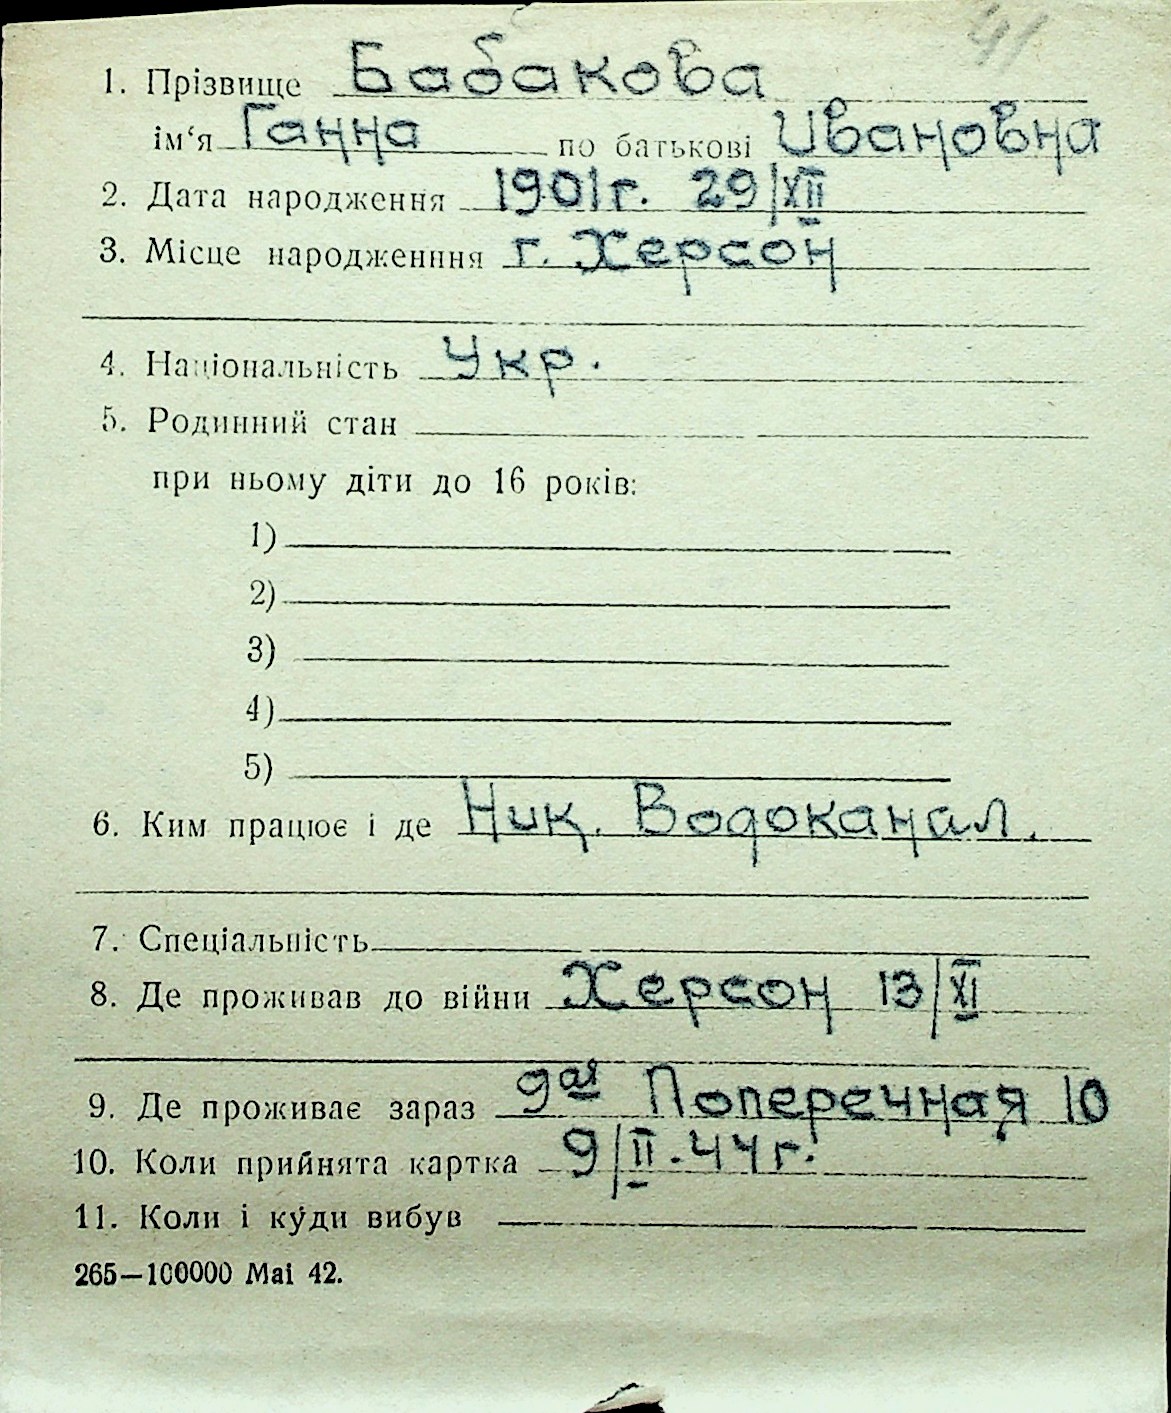 41
1. Прізвище Бабакова
ім‘я Ганна по батькові Ивановна
2. Дата народження 1901г. 29/XII
3. Місце народженння г. Херсон
4. Національність Укр.
5. Родинний стан
при ньому діти до 16 років:
1)
2)
3)
4)
5)
6. Ким працює і де Ник. Водоканал.
7. Спеціальність
8. Де проживав до війни Херсон 13/XI
9. Де проживає зараз 9ая Поперечная 10
10. Коли прийнята картка 9/II.44г.
11. Коли і куди вибув
265—100000 Mai 42.